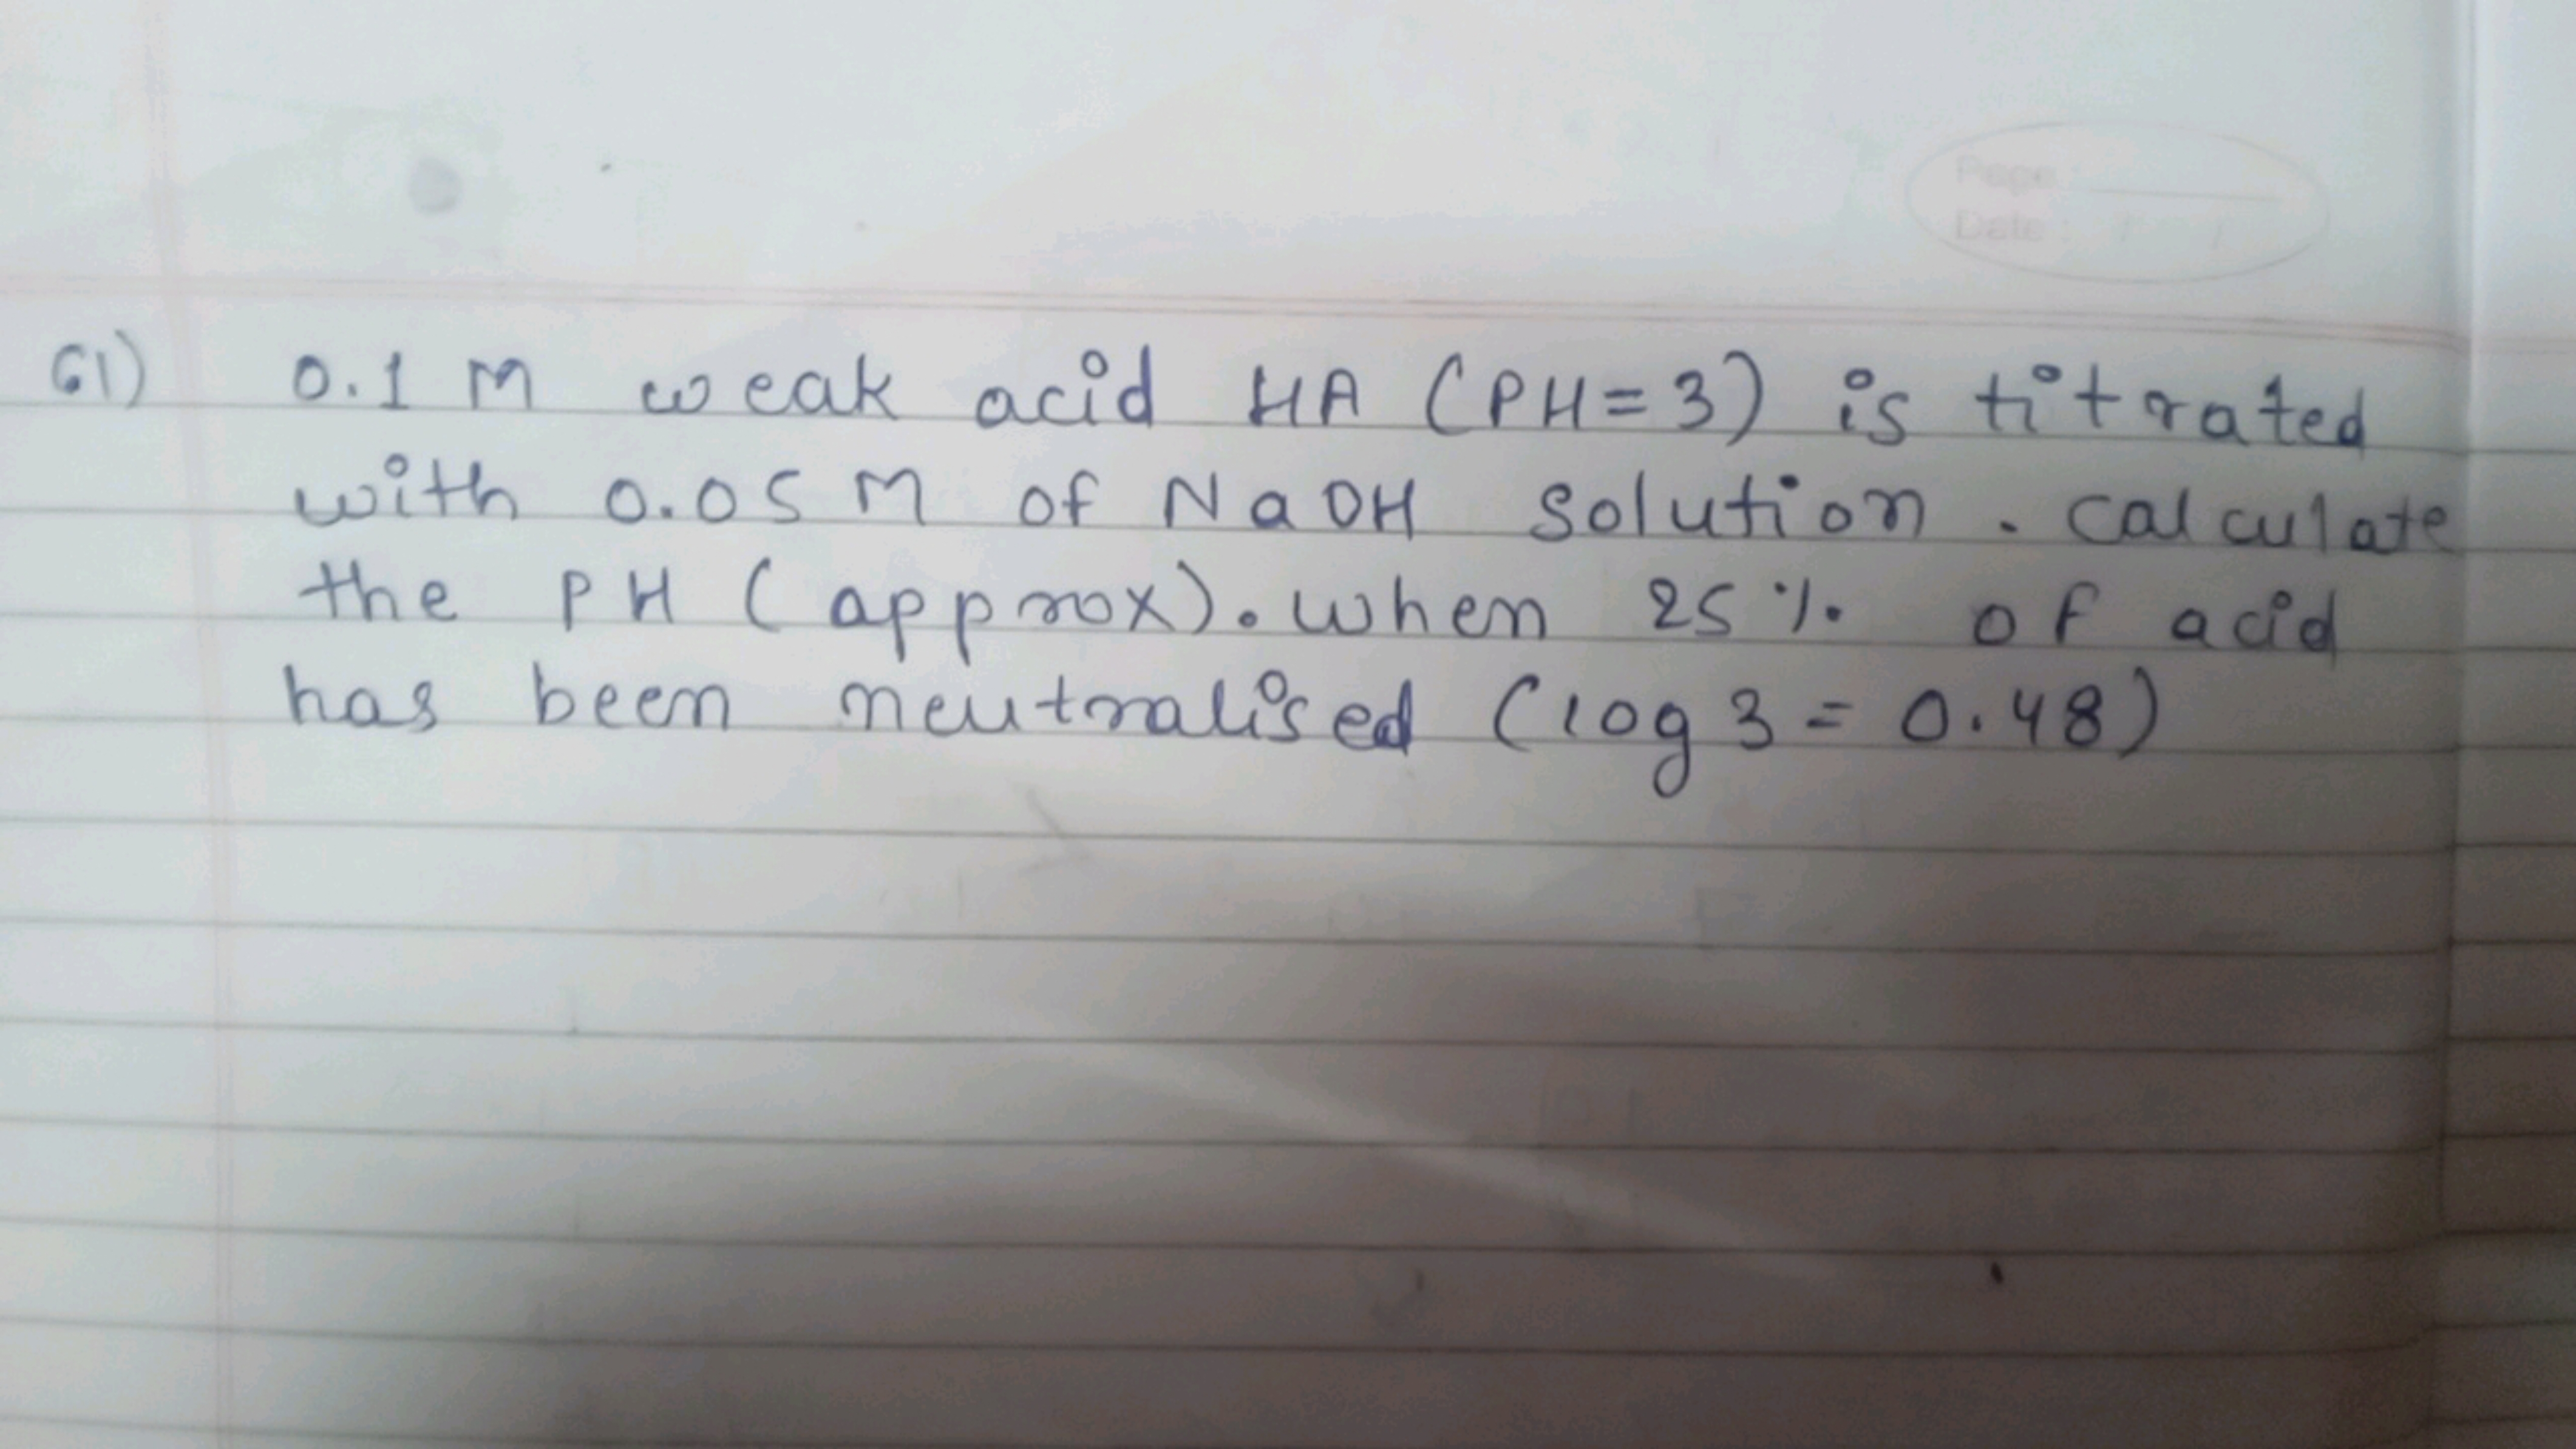 Page :
Date : / /
61) 0.1 M weak acid HA (PH=3) is titrated
with 0.05 M of NaOH solution. calculate
the PH (approx). when 25% of acid
has been neutralised (log 3 = 0.48)